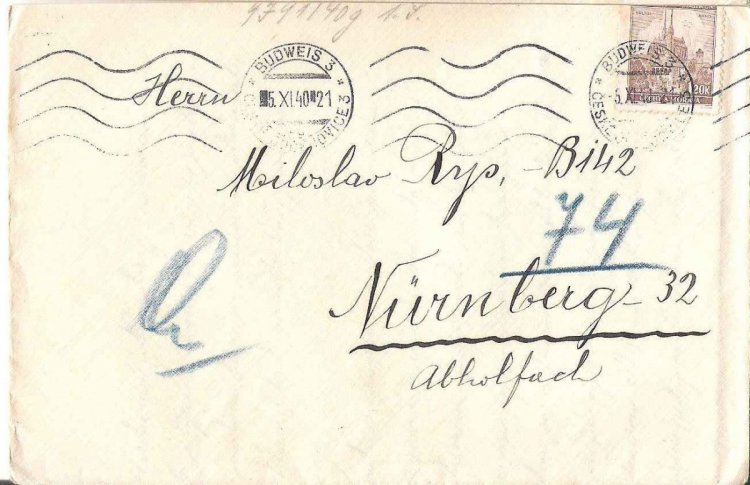 9791140g
BUDWEIS 3
5.XI.40-21
BUDWEIS 3
5.X
1.20K
Herrn
Miloslav Rys, - B142
74
Nürnberg - 32
Abholfach